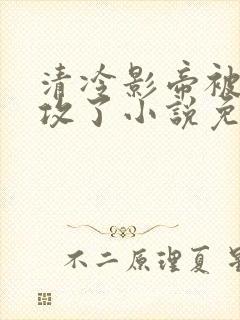 清冷影帝被
攻了小说免
不二原理夏